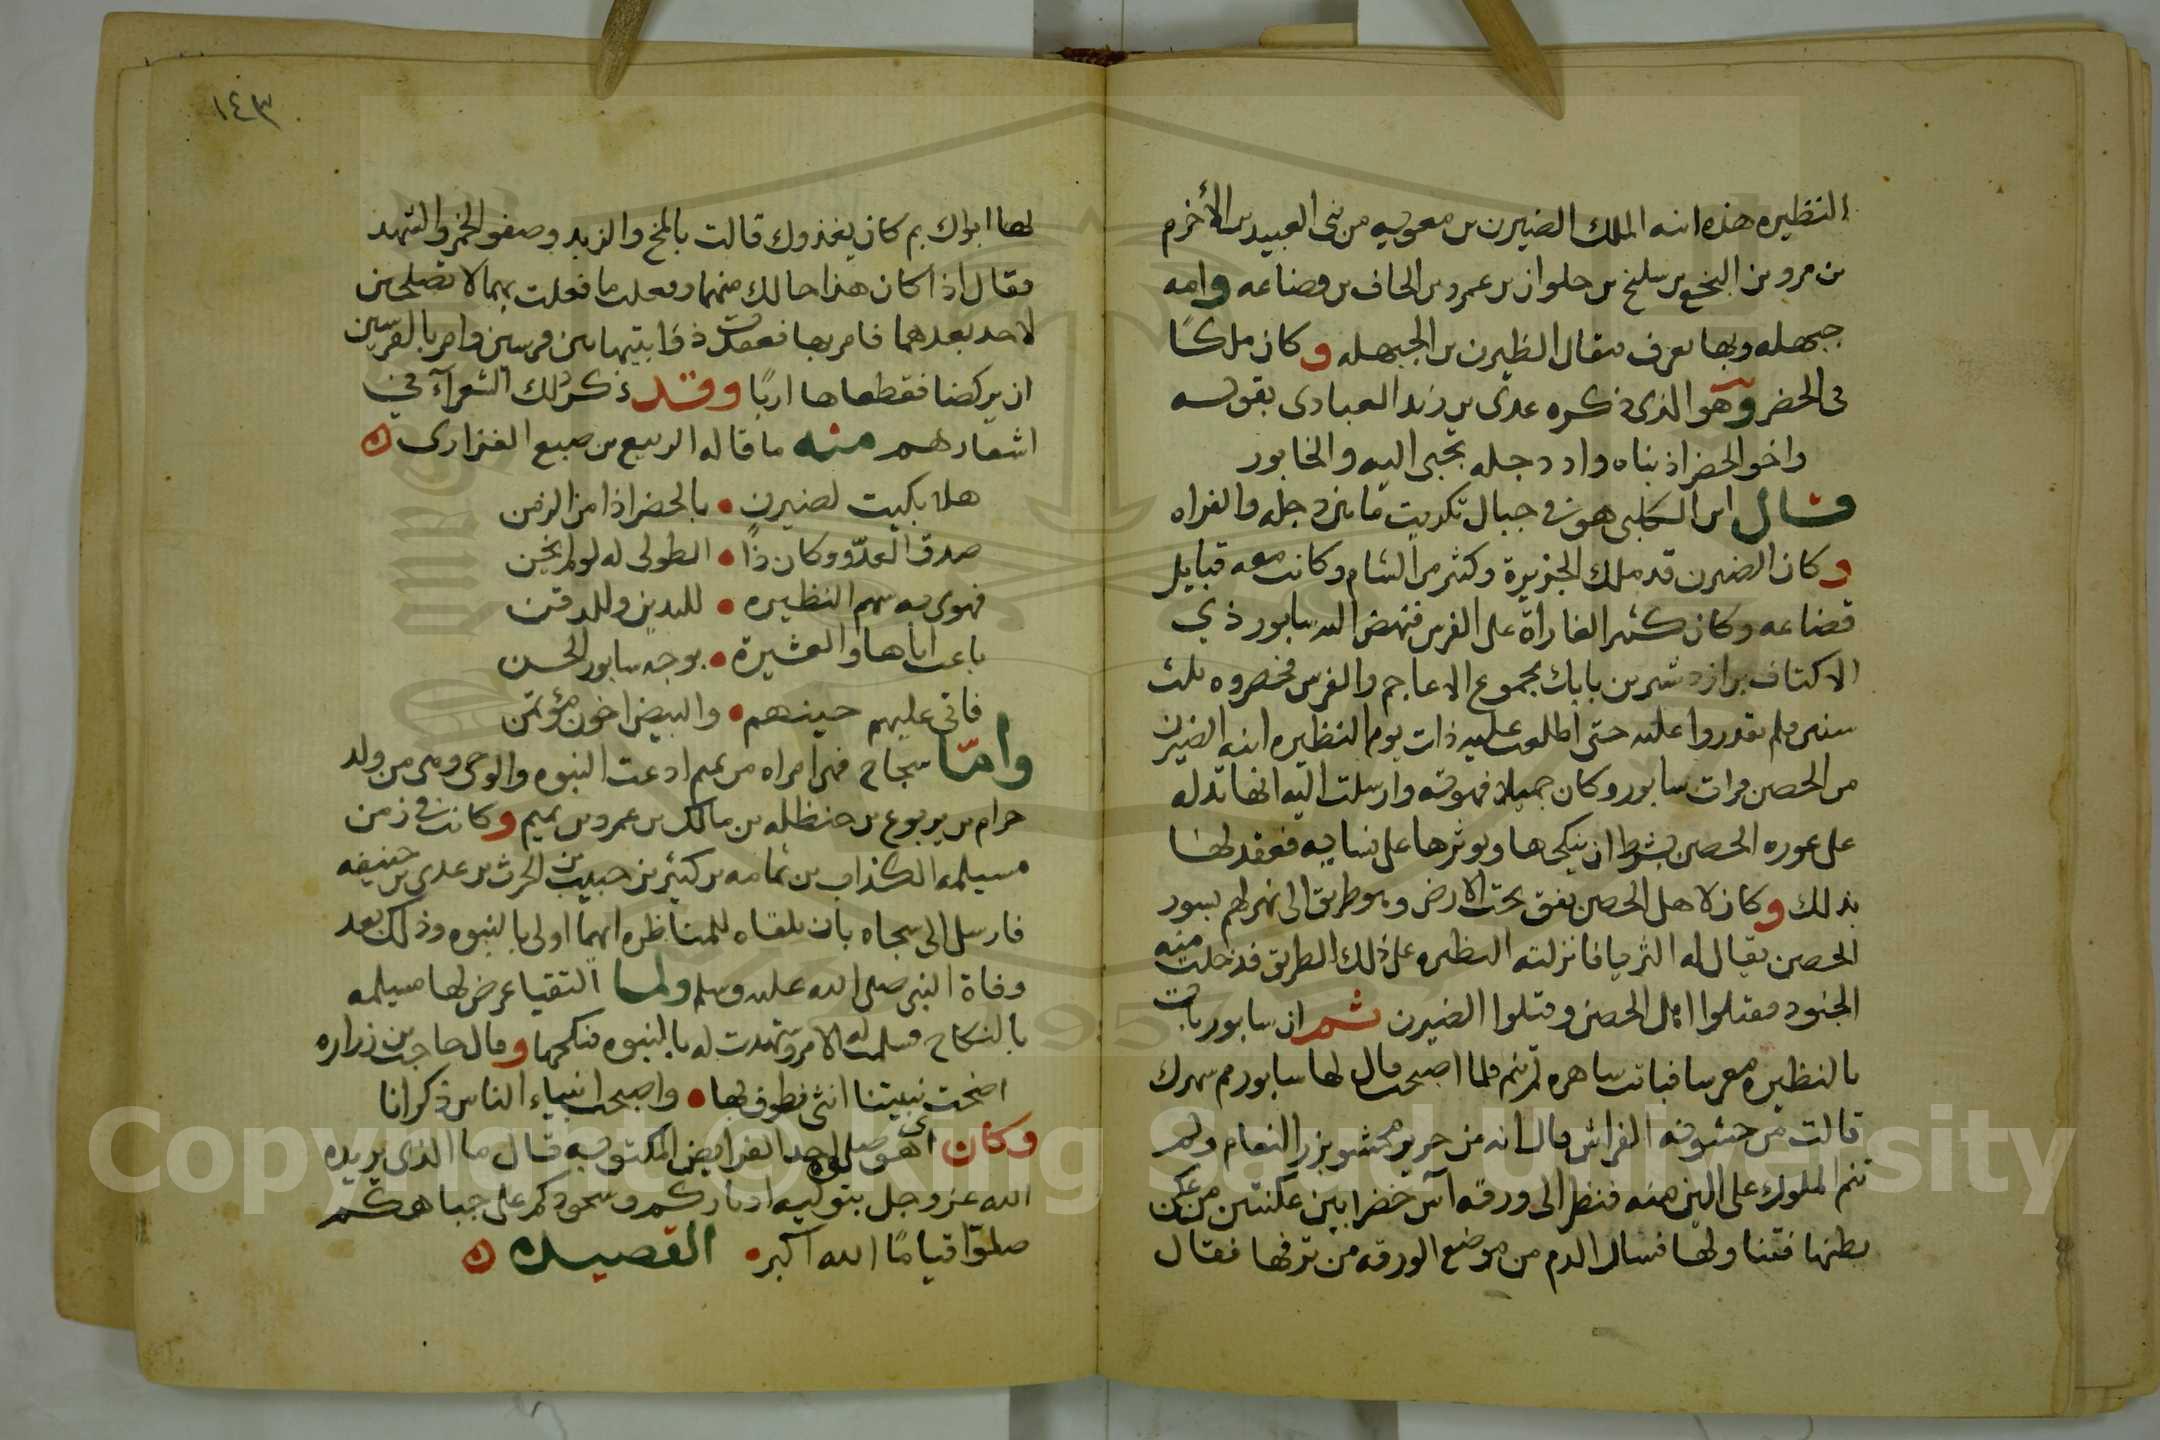 النظيره هذه ابنه الملك الضيزن بن معويه من بنى العبيد بن الأخرم
بن مرو بن النخع بن سليح بن حلوان بن عمرو بن الحاف بن قضاعه وامه
جبهله وبها يعرف فيقال الظيزن بن الجبهله وكان ملكًا
فى الحضر وهو الذى ذكره عدى بن زيد العبادى بقوله
واخو الحضر اذ بناه واد دجله تجبى اليه والخابور
قال ابن الكلبى هو فى جبال تكريت ما بين دجله والفراه
وكان الضيزن قد ملك الجزيرة وكثير من الشام وكانت معه قبايل
قضاعه وكان كثير الغاراة على الفرس فنهض اليه سابور ذى
الاكتاف بن ازدشير بن بابك بجموع الاعاجم والفرس فحصروه ثلث
سنين فلم يقدروا عليه حتى اطلعت عليه ذات يوم النظيره ابنه الضيزن
من الحصن فرات سابور وكان جميلا فهوته وارسلت اليه انها تدله
على عوره الحصن بشرط ان ينكحها ويوثرها على نسايه فعقد لها
بذلك وكان لاهل الحصن نفق تحت الارض وهو طريق الى نهر لهم بسور
الحصن يقال له الثرثيا فانزلته النظيره على ذلك الطريق فدخلت منه
الجنود فقتلوا اهل الحصن وقتلوا الضيزن ثم ان سابور بات
بالنظيره معرسا فباتت ساهره لم تنم فلما اصبحت قال لها سابور مم سهرك
قالت من خشونه الفراش قال انه من حرير محشو بزر النعام ولم
تنم الملوك على الين منه فنظر الى ورقه آس خضرا بين عكنتين من عكن
بطنها فتناولها فسال الدم من موضع الورقه من ترفها فقال
١٤٣
لها ابواك بم كان يغذوك قالت بالمخ والزبد وصفو الخمر والشهد
فقال اذا كان هذا حالك منهما وفعلت ما فعلت بهما لا تصلحين
لاحد بعدهما فامر بها فعقدت ذؤابتيها بين فرسين وامر بالفرسين
ان يركضا فقطعاها اربًا وقد ذكر ذلك الشعرآء فى
اشعارهم منه ما قاله الربيع بن ضبع الفزارى
هلا بكيت لضيزن • بالحضر اذا من الزمن
صدق العدّو وكان ذا • الطولى له لو لم يخن
فهوى به سهم النظيره • لليدين وللدقن
باعت اباها والعشيرة • بوجه سابور الحسن
فاتى عليهم حينهم • والبيض اخون مؤتمن
وامّا سجاح فهى امراه من تميم ادعت النبوه والوحى وهى من ولد
حرام بن يربوع بن حنظله بن مالك بن عمرو بن تميم وكانت فى زمن
مسيلمه الكذاب بن ثمامه بن كثير بن حبيب بن الحرث بن عدى بن حنيفه
فارسل الى سجاه بان يلقاه للمناظره ايهما اولى بالنبوه وذلك بعد
وفاة النبى صلى الله عليه وسلم ولما التقيا عرض لها مسيلمه
بالنكاح فسلمت له الامر وشهدت له بالنبوه فنكحها وقال حاجب بن زراره
اضحت نبيتنا انثى نطوف بها • واصبحت انبياء الناس ذكرانا
وكان اهوى صلى احد الفرايض المكتوبه قال ما الذى يريده
الله عز وجل بتوليه ادباركم وسجودكم على جباهكم
صلوّا قيامًا الله اكبر • القصيده
Copyright © King Saud University